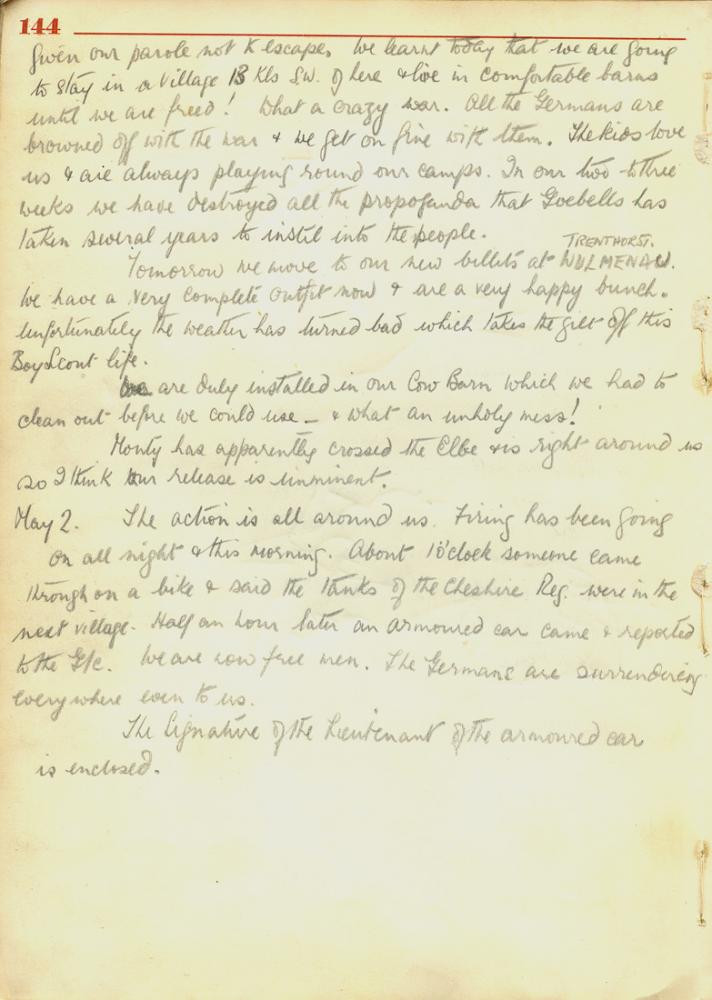 144
given our parole not to escape. We learnt today that we are going
to stay in a village 18 Kls S.W. of here & live in comfortable barns
until we are freed! What a crazy war. All the Germans are
browned off with the war & we get on fine with them. The kids love
us & are always playing round our camps. In our two to three
weeks we have destroyed all the propoganda that Goebells has
taken several years to instil into the people.
TRENTHORST.
Tomorrow we move to our new billets at WULMENAU.
We have a very complete outfit now & are a very happy bunch.
Unfortunately the weather has turned bad which takes the gilt off this
Boy Scout life.
We are duly installed in our Cow Barn which we had to
clean out before we could use - & what an unholy mess!
Monty has apparently crossed the Elbe & is right around us
so I think our release is imminent.
May 2. The action is all around us. Firing has been going
on all night & this morning. About 1 o'clock someone came
through on a bike & said the tanks of the Cheshire Reg. were in the
next village. Half an hour later an armoured car came & reported
to the G/c. We are now free men. The Germans are surrendering
everywhere even to us.
The Signature of the Lieutenant of the armoured car
is enclosed.